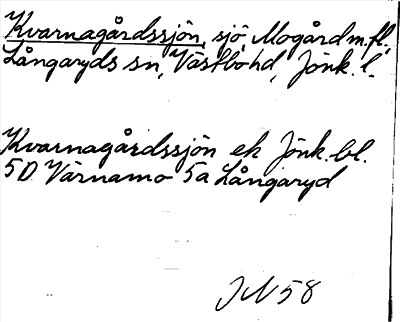 Kvarnagårdssjön, sjö, Mogård m.fl.,
Långaryds sn, Västbo hd, Jönk. l.
Kvarnagårdssjön ek Jönk. bl.
5D Värnamo 5a Långaryd
JN 58